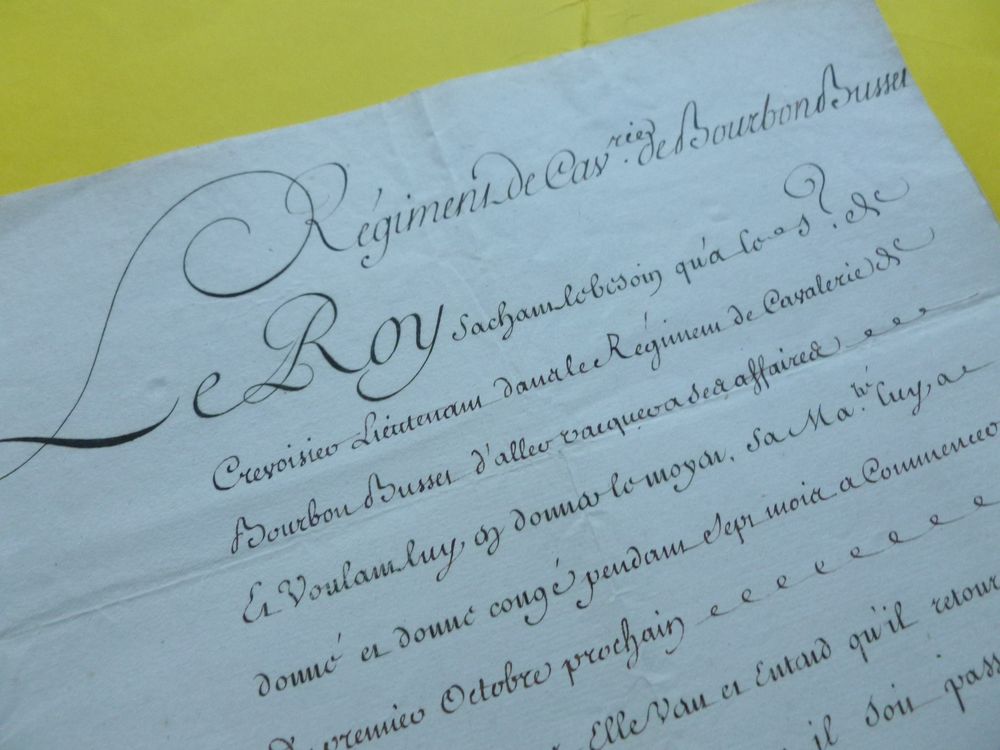 Régiment de Cav.rie de Bourbon Busset
Le Roy sachant le besoin qu'a le S.r de
Crevoisier Lieutenant dans le Régiment de Cavalerie de
Bourbon Busset d'aller vacquer a ses affaires
Et Voulant luy en donner le moyen. Sa Ma.té luy a
donné et donne congé pendant Sept mois a Commencer
Du premier Octobre prochain
Elle Veut et Entend qu'il retour
il soit pass